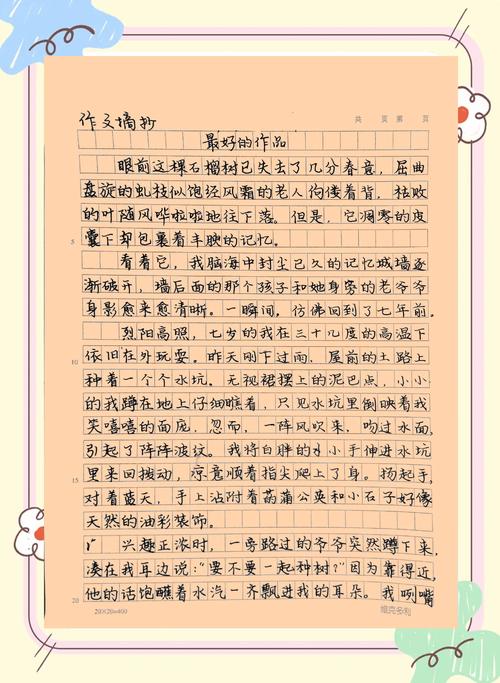 作文摘抄
共 页 第 页
最好的作品
眼前这棵石榴树已失去了几分春意，屈曲
盘旋的虬枝似饱经风霜的老人佝偻着背，枯败
的叶随风哗啦啦地往下落。但是，它凋零的皮
5 囊下却包裹着丰腴的记忆。
看着它，我脑海中封尘已久的记忆城墙逐
渐破开，墙后面的那个孩子和她身旁的老爷爷
身影愈来愈清晰。一瞬间，仿佛回到了七年前。
烈阳高照，七岁的我在三十几度的高温下
10 依旧在外玩耍。昨天刚下过雨，屋前的土路上
种着一个个水坑。无视裙摆上的泥巴点，小小
的我蹲在地上仔细瞧着，只见水坑里倒映着我
笑嘻嘻的面庞，忽而，一阵风吹来，吻过水面，
引起了阵阵波纹。我将白胖的小手伸进水坑
15 里来回拨动，凉意顺着指尖爬上了身。扬起手，
对着蓝天，手上沾附着的蒲公英和小石子好像
天然的油彩装饰。
兴趣正浓时，一旁路过的爷爷突然蹲下来，
凑在我耳边说：“要不要一起种树？”因为靠得近，
20 他的话饱蘸着水汽一齐飘进我的耳朵。我咧嘴
20×20=400
维克多利